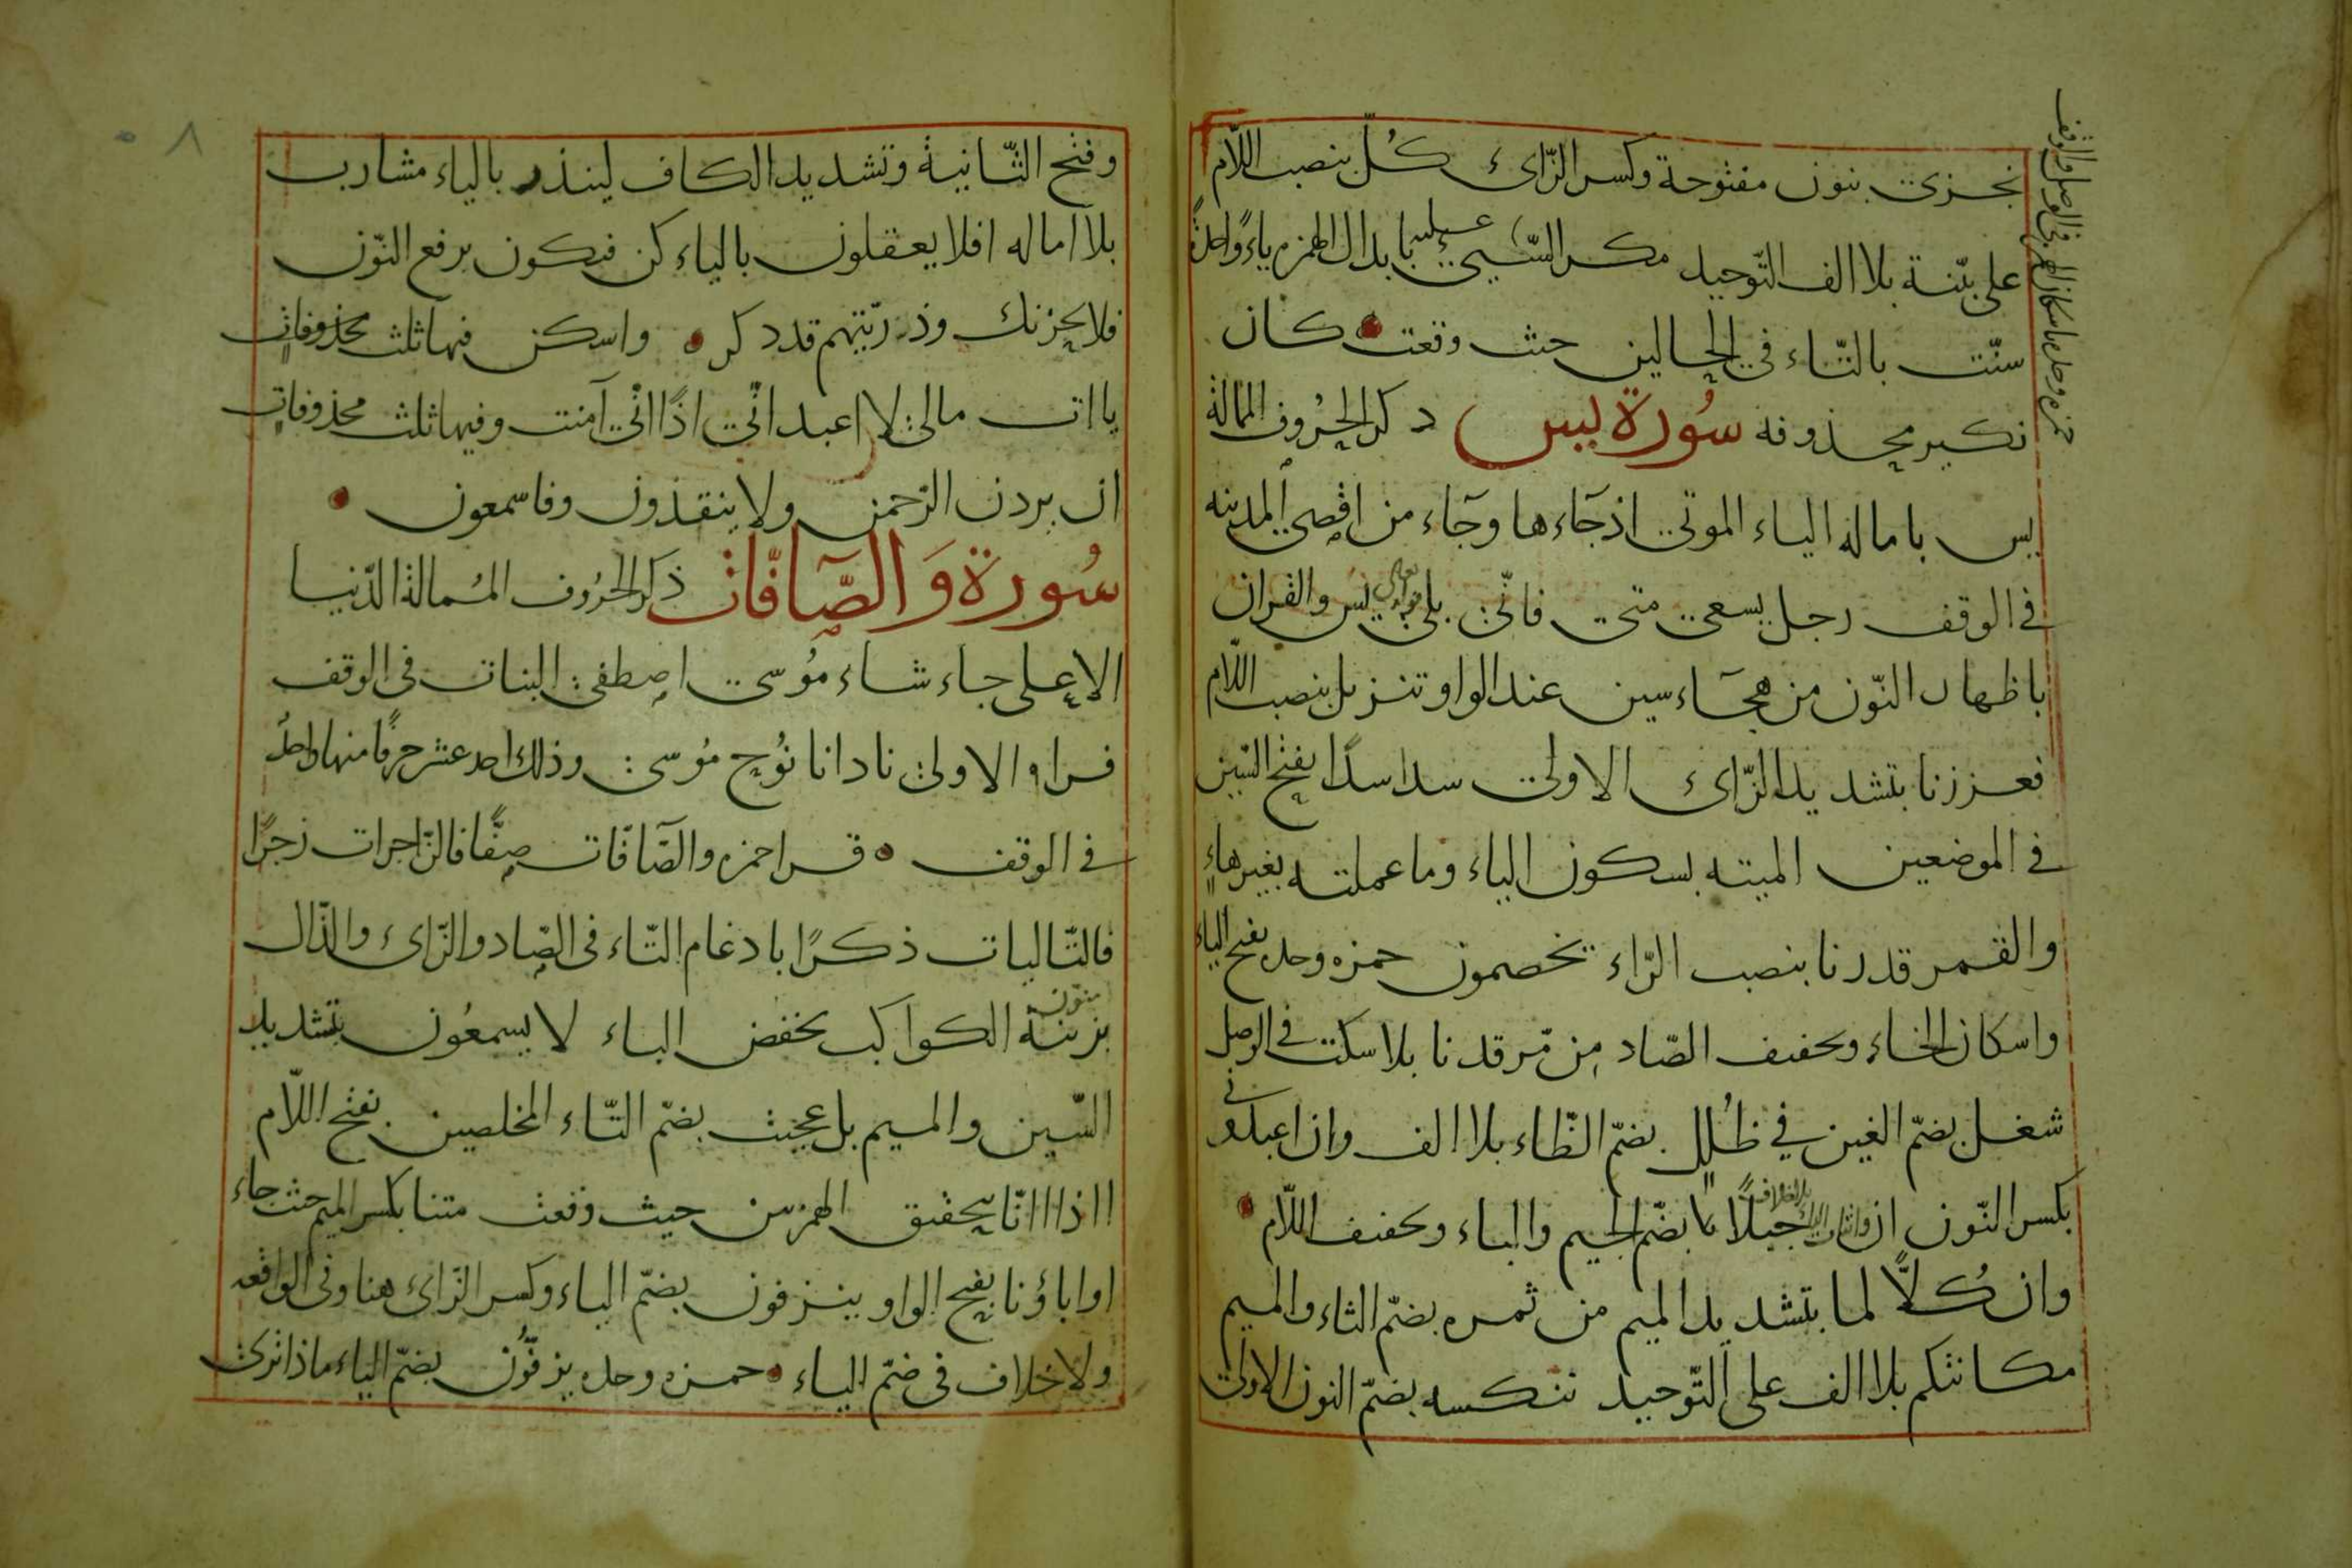 نجزى بنون مفتوحة وكسر الزّاى كُلّ بنصب اللّام
على بيّنة بلا الف التّوحيد مكر السّيئ بابدال الهمزه ياءً واحدةً
سنّت بالتّاء فى الحالين حيث وقعت كان
نكير محذوفه سُورة يس ذكر الحُروف الممالة
يس باماله الياء الموتى اذ جَاءها وجَاء من اقصى المدينه
فى الوقف رجل يسعى متى فانّى بلى يس والقران
باظهار النّون من هجَاء سين عند الواو تنزيل بنصب اللّام
فعززنا بتشديد الزّاى الاولى سدا سدًا بفتح السّين
فى الموضعين الميته بسكون الياء وما عملته بغير هاءٍ
والقمر قدرنا بنصب الرّاء يخصمون حمزه وحده بفتح الياء
واسكان الخاء وتخفيف الصّاد مِن مّرقدنا بلا سكت فى الوصل
شغل بضمّ الغين فى ظُلل بضمّ الظّاء بلا الف وان اعبدونى
بكسر النّون واثبات الياء بلا خلاف جبلًا بضمّ الجيم والباء وتخفيف اللّام
وان كُلًّا لما بتشديد الميم من ثمره بضمّ الثاء والميم
مكانتكم بلا الف على التّوحيد ننكسه بضمّ النون الاولى
حمزه وحده باسكان الهمزة فى الوصل والوقف
وفتح الثّانية وتشديد الكاف لينذر بالياء مشارب
بلا اماله افلا يعقلون بالياء كن فيكون برفع النّون
فلا يحزنك وذرّيتهم قد ذكر واسكن فيها ثلث محذوفاتٍ
يا ات مالى لا اعبد انّى اذًا انّى آمنت وفيها ثلث محذوفاتٍ
ان يردن الرّحمن ولا ينقذون وفاسمعون
سُورة وَالصّافّات ذكر الحُروف المُمالة الدّنيا
الاعلى جاء شاء مُوسى اصطفى البنات فى الوقف
فراه الاولى نادانا نُوح مُوسى وذلك احد عشر حرفًا منها واحدٌ
فى الوقف قرا حمزه والصّافّات صفًّا فالزّاجرات زجرًا
فالتّاليات ذكرًا بادغام التّاء فى الصّاد والزّاى والذّال
بزينة منوّن الكواكب بخفض الباء لا يسمعُون بتشديد
السّين والميم بل عجبت بضمّ التّاء المخلصين بفتح اللّام
ااذا اانّا بتحقيق الهمزتين حيث وقعت متنا بكسر الميم حيث جاء
اواباؤنا بفتح الواو ينزفون بضمّ الياء وكسر الزّاى هنا وفى الواقعه
ولا خلاف فى ضمّ الياء حمزه وحده يزفّون بضمّ الياء ماذا ترى
٨